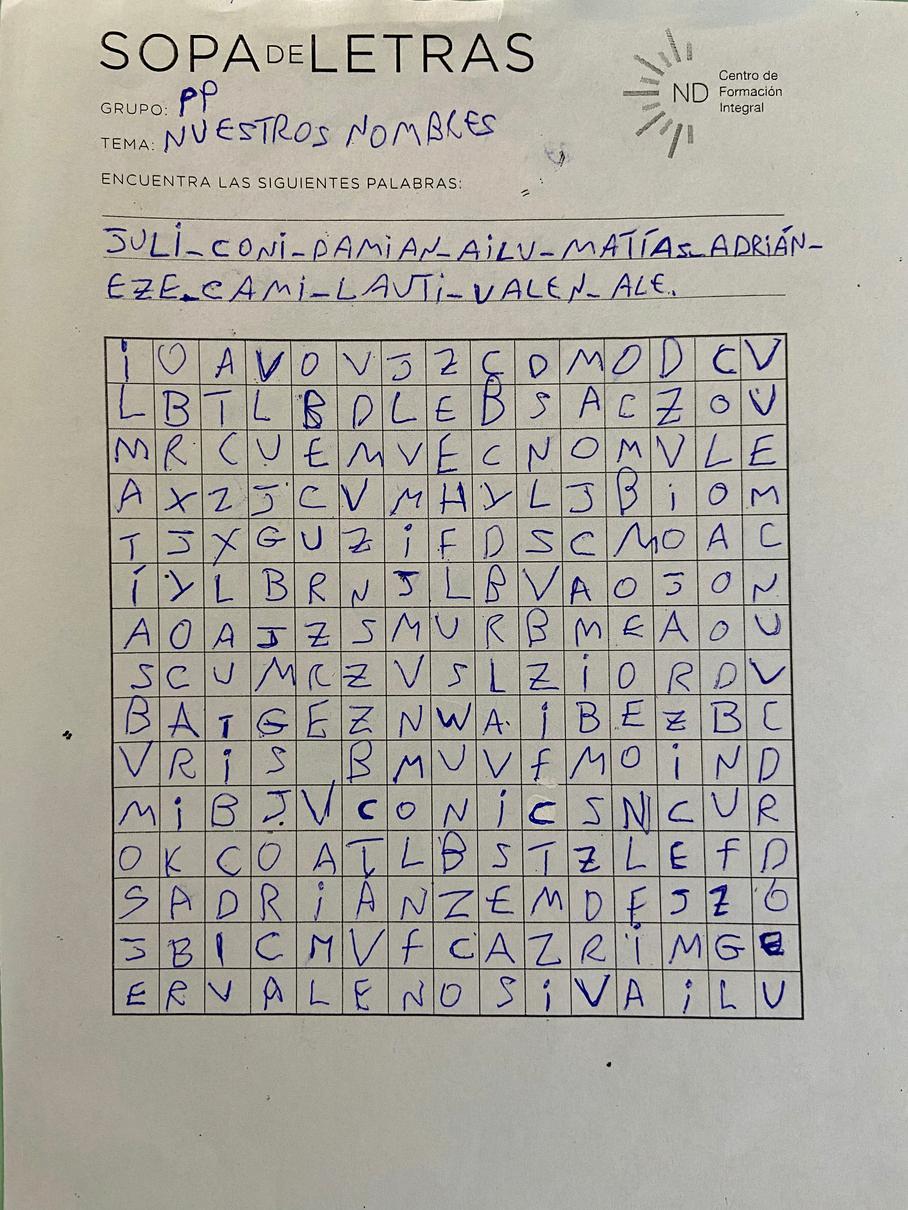 SOPA DE LETRAS
ND Centro de
Formación
Integral
GRUPO: PP
TEMA: NUESTROS NOMBRES
ENCUENTRA LAS SIGUIENTES PALABRAS:
JULI-CONI-DAMIAN-AILU-MATÍAS-ADRIÁN-
EZE-CAMI-LAUTI-VALEN-ALE.
I O A V O V J Z C D M O D C V
L B T L B D L E B S A C Z O U
M R C U E M V E C N O M V L E
A X Z J C V M H Y L J B I O M
T J X G U Z I F D S C M O A C
Í Y L B R N J L B V A O J O N
A O A J Z S M U R B M E A O U
S C U M R Z V S L Z I O R D V
B A T G E Z N W A I B E Z B C
V R I S B M U V F M O I N D
M I B J V C O N I C S N C U R
O K C O A T L B S T Z L E F D
S A D R I A N Z E M D E J Z O
J B I C M V F C A Z R I M G E
E R V A L E N O S I V A I L U